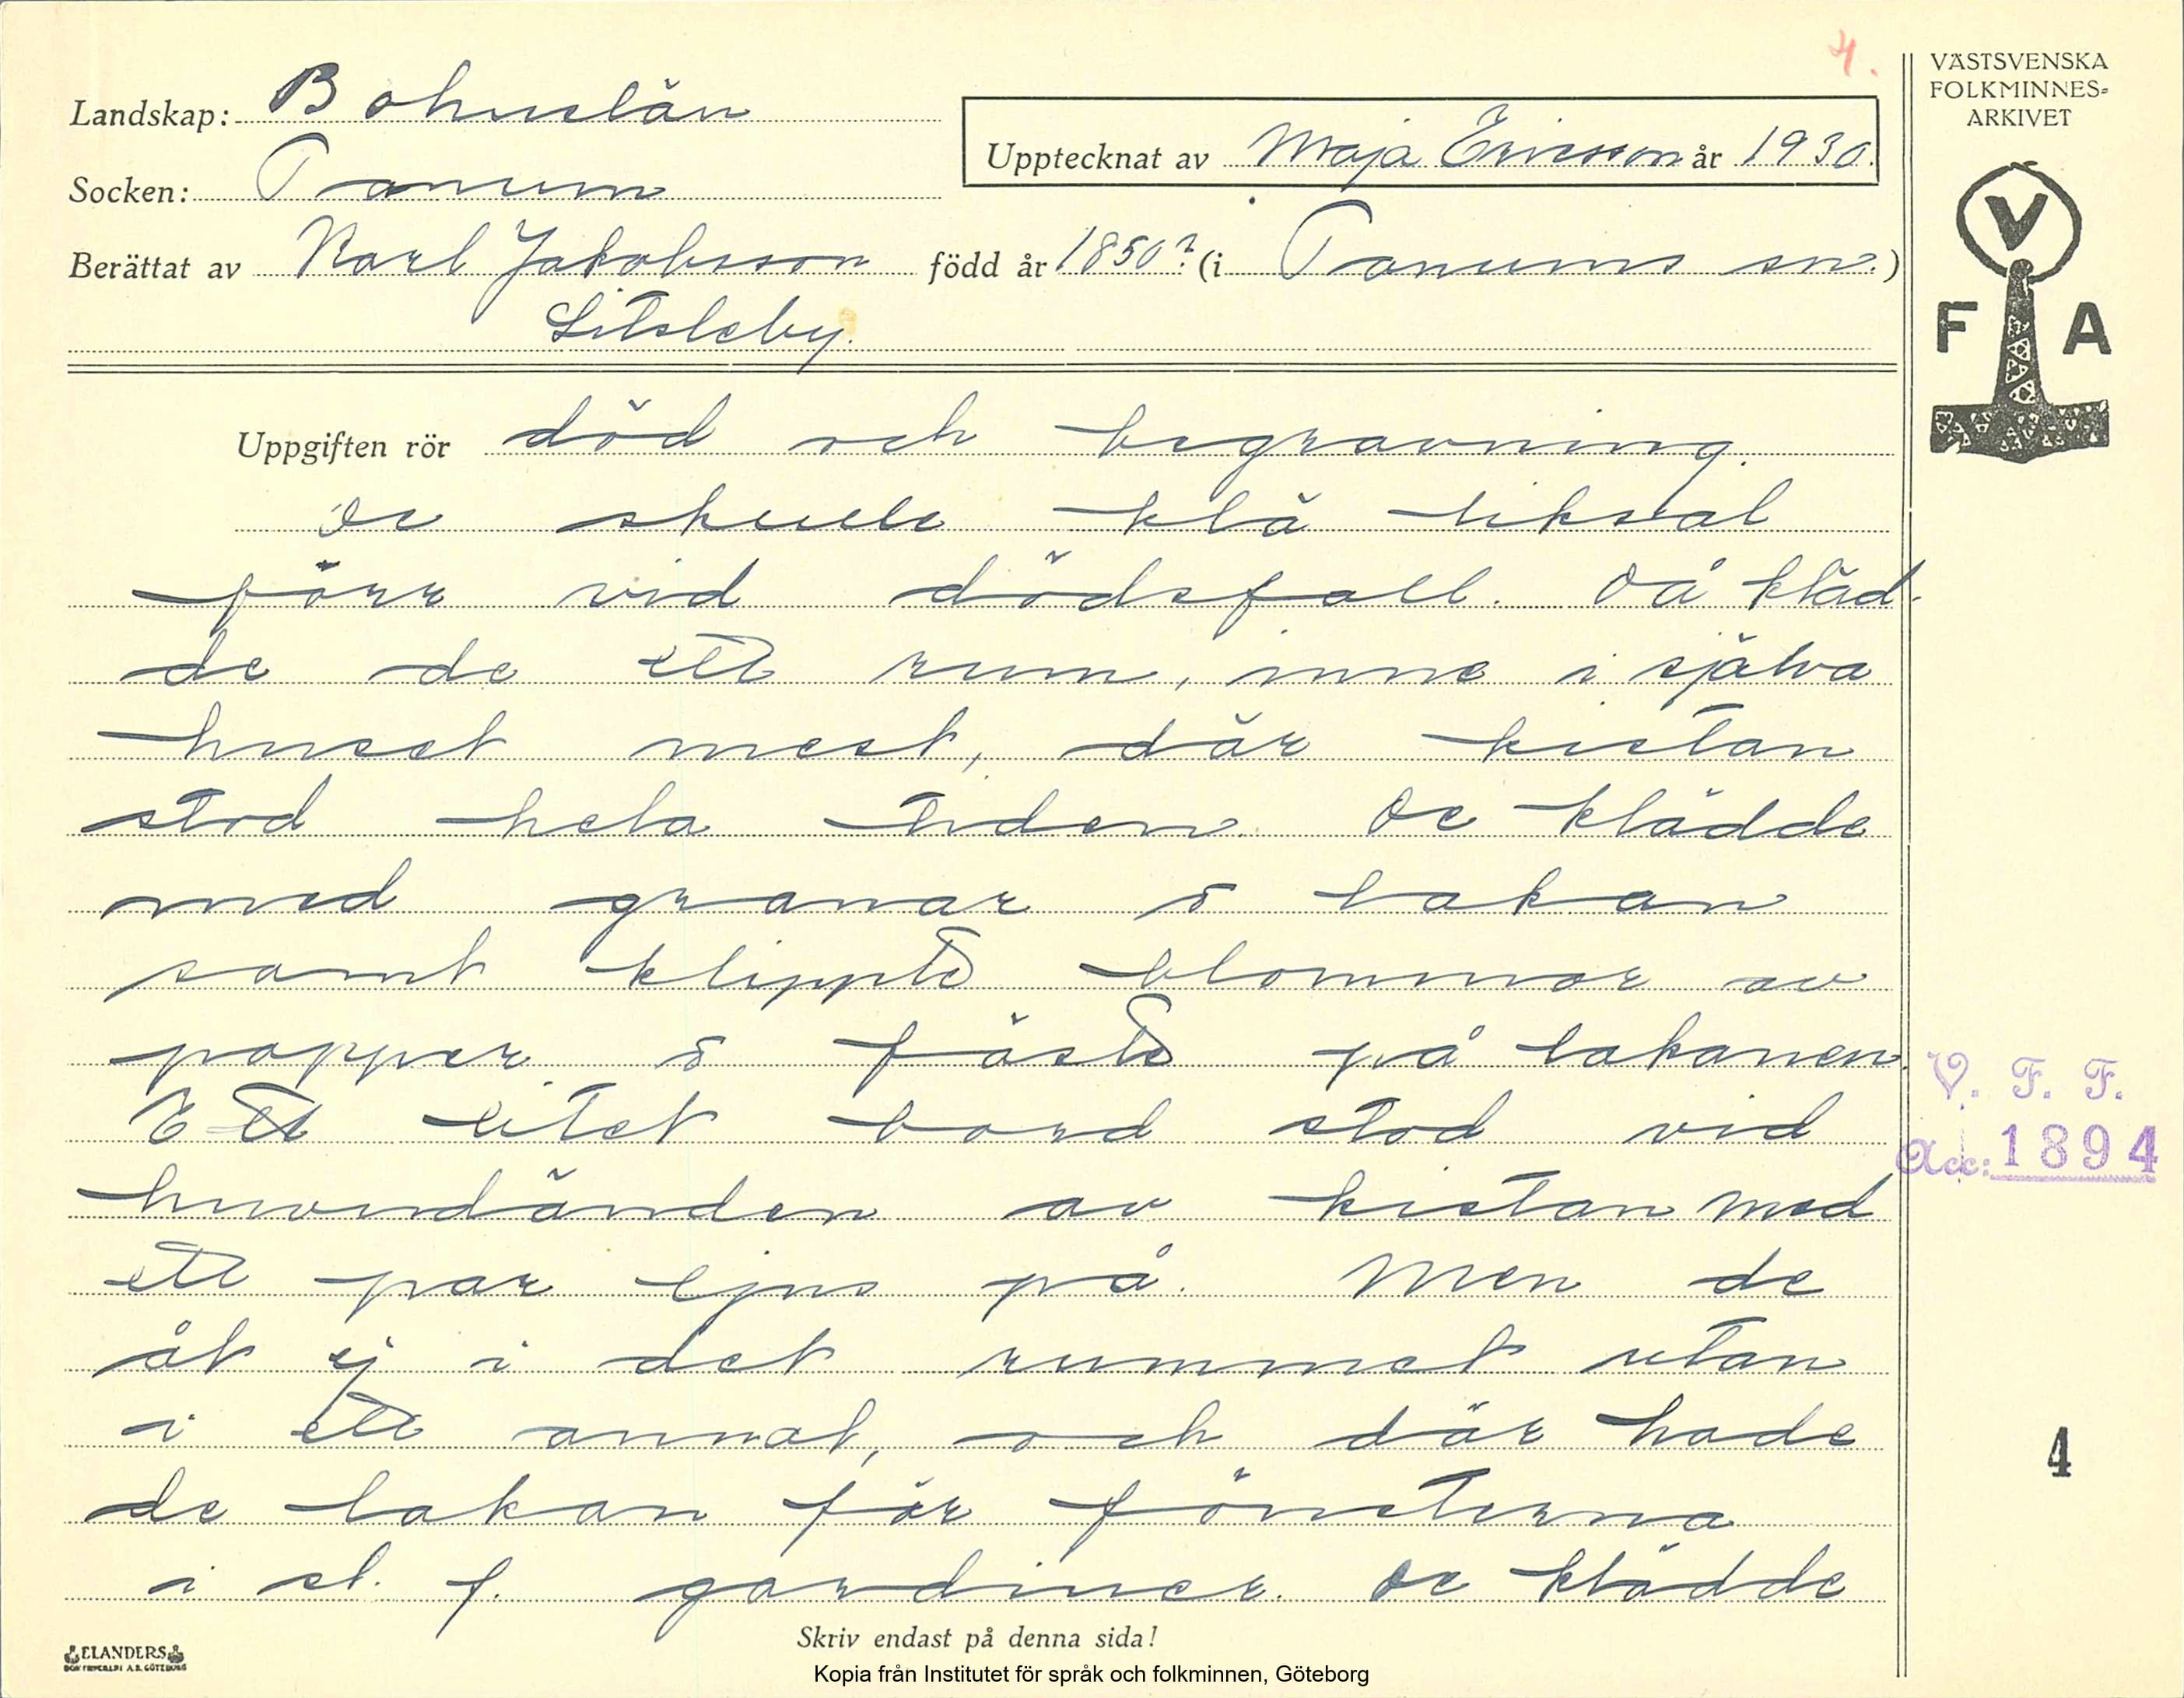 4.
VÄSTSVENSKA
FOLKMINNES-
ARKIVET
Landskap: Bohuslän
Upptecknat av Maja Ericsson år 1930.
Socken: Tanum
Berättat av Karl Jakobsson född år 1850? (i Tanums sn.)
Litsleby.
V
F A
Uppgiften rör död och begravning.
De skulle klä liksal
förr vid dödsfall. Då kläd-
de de ett rum, inne i själva
huset mest, där kistan
stod hela tiden. De klädde
med granar & lakan
samt klippte blommor av
papper & fäste på lakanen.
Ett litet bord stod vid
huvudänden av kistan med
ett par ljus på. Men de
åt ej i det rummet utan
i ett annat, och där hade
de lakan för fönsterna
i st. f. gardiner. De klädde
V. F. F.
Acc: 1894
4
Skriv endast på denna sida!
ELANDERS
BOKTRYCKERI A.B. GÖTEBORG
Kopia från Institutet för språk och folkminnen, Göteborg